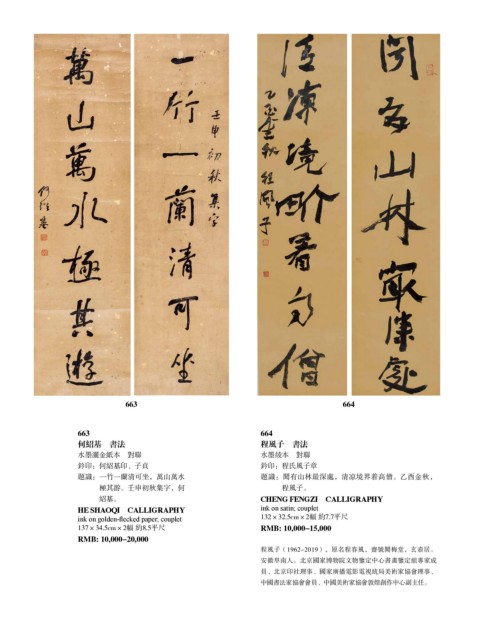 一竹一蘭清可坐
壬申初秋集字
萬山萬水極其遊
何紹基
山林
深處
清涼境界着高僧
乙酉金秋程風子
663
664
663
何紹基　書法
水墨灑金紙本　對聯
鈐印：何紹基印、子貞
題識：一竹一蘭清可坐，萬山萬水
極其游。壬申初秋集字，何
紹基。
HE SHAOQI　CALLIGRAPHY
ink on golden-flecked paper; couplet
137×34.5cm×2幅 約8.5平尺
RMB: 10,000-20,000
664
程風子　書法
水墨綾本　對聯
鈐印：程氏風子章
題識：閑有山林最深處，清凉境界着高僧。乙酉金秋，
程風子。
CHENG FENGZI　CALLIGRAPHY
ink on satin; couplet
132×32.5cm×2幅 約7.7平尺
RMB: 10,000-15,000
程風子（1962-2019），原名程春風，齋號閑梅堂，玄壺居。
安徽阜南人。北京國家博物院文物鑒定中心書畫鑒定組專家成
員、北京印社理事、國家廣播電影電視總局美術家協會理事、
中國書法家協會會員、中國美術家協會敦煌創作中心副主任。